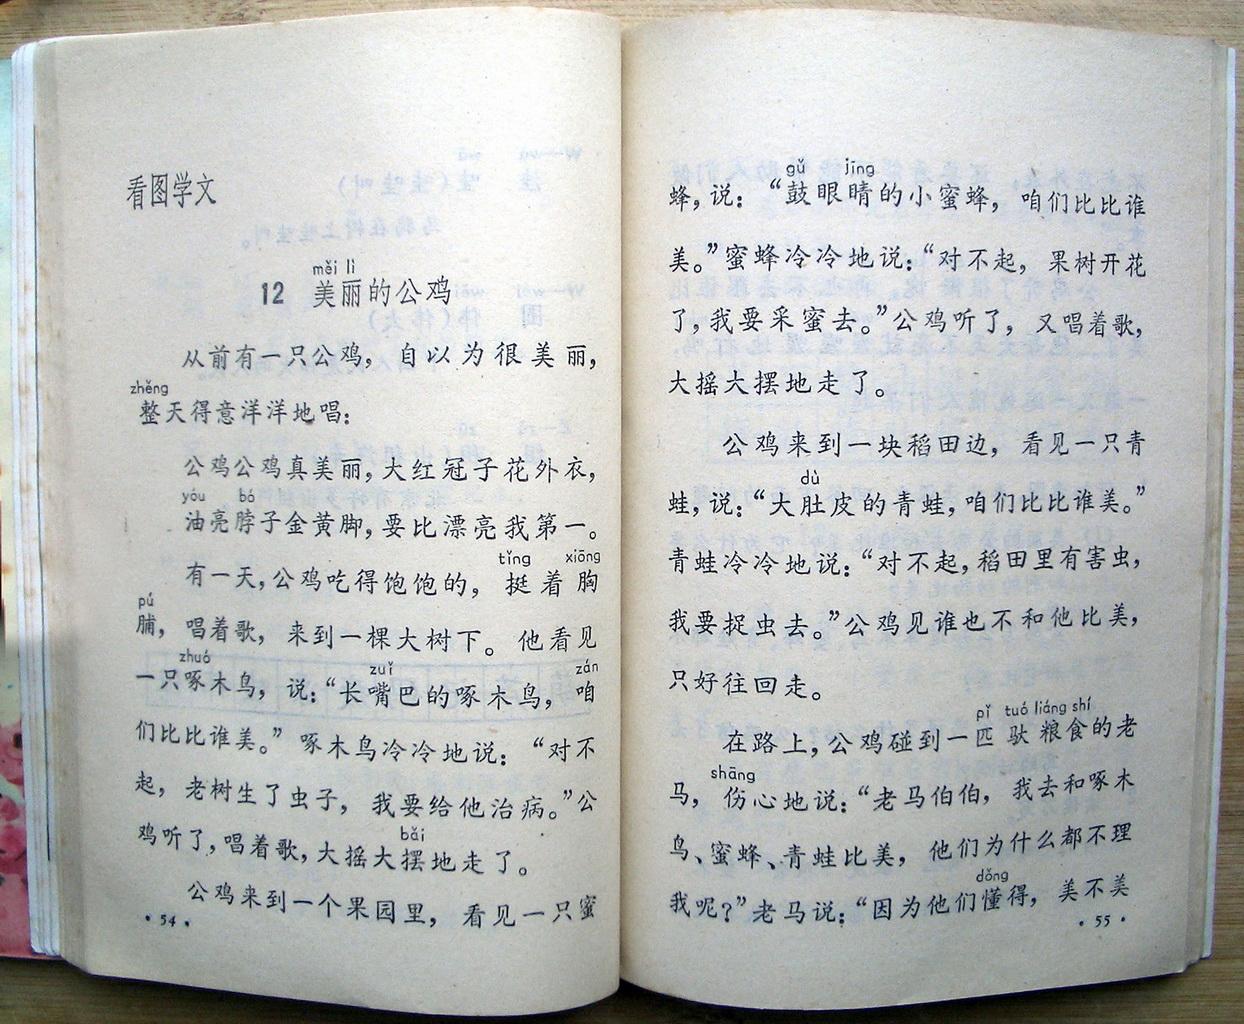 看图学文
měi lì
12 美丽的公鸡
从前有一只公鸡，自以为很美丽，
zhěng
整天得意洋洋地唱：
公鸡公鸡真美丽，大红冠子花外衣，
yóu bó
油亮脖子金黄脚，要比漂亮我第一。
有一天，公鸡吃得饱饱的，挺着胸
tǐng xiōng
pú
脯，唱着歌，来到一棵大树下。他看见
zhuó zuǐ zán
一只啄木鸟，说：“长嘴巴的啄木鸟，咱
们比比谁美。”啄木鸟冷冷地说：“对不
起，老树生了虫子，我要给他治病。”公
鸡听了，唱着歌，大摇大摆地走了。
bǎi
公鸡来到一个果园里，看见一只蜜
·54·
gǔ jīng
蜂，说：“鼓眼睛的小蜜蜂，咱们比比谁
美。”蜜蜂冷冷地说：“对不起，果树开花
了，我要采蜜去。”公鸡听了，又唱着歌，
大摇大摆地走了。
公鸡来到一块稻田边，看见一只青
dù
蛙，说：“大肚皮的青蛙，咱们比比谁美。”
青蛙冷冷地说：“对不起，稻田里有害虫，
我要捉虫去。”公鸡见谁也不和他比美，
只好往回走。
pǐ tuó liáng shí
在路上，公鸡碰到一匹驮粮食的老
shāng
马，伤心地说：“老马伯伯，我去和啄木
鸟、蜜蜂、青蛙比美，他们为什么都不理
dǒng
我呢？”老马说：“因为他们懂得，美不美
·55·